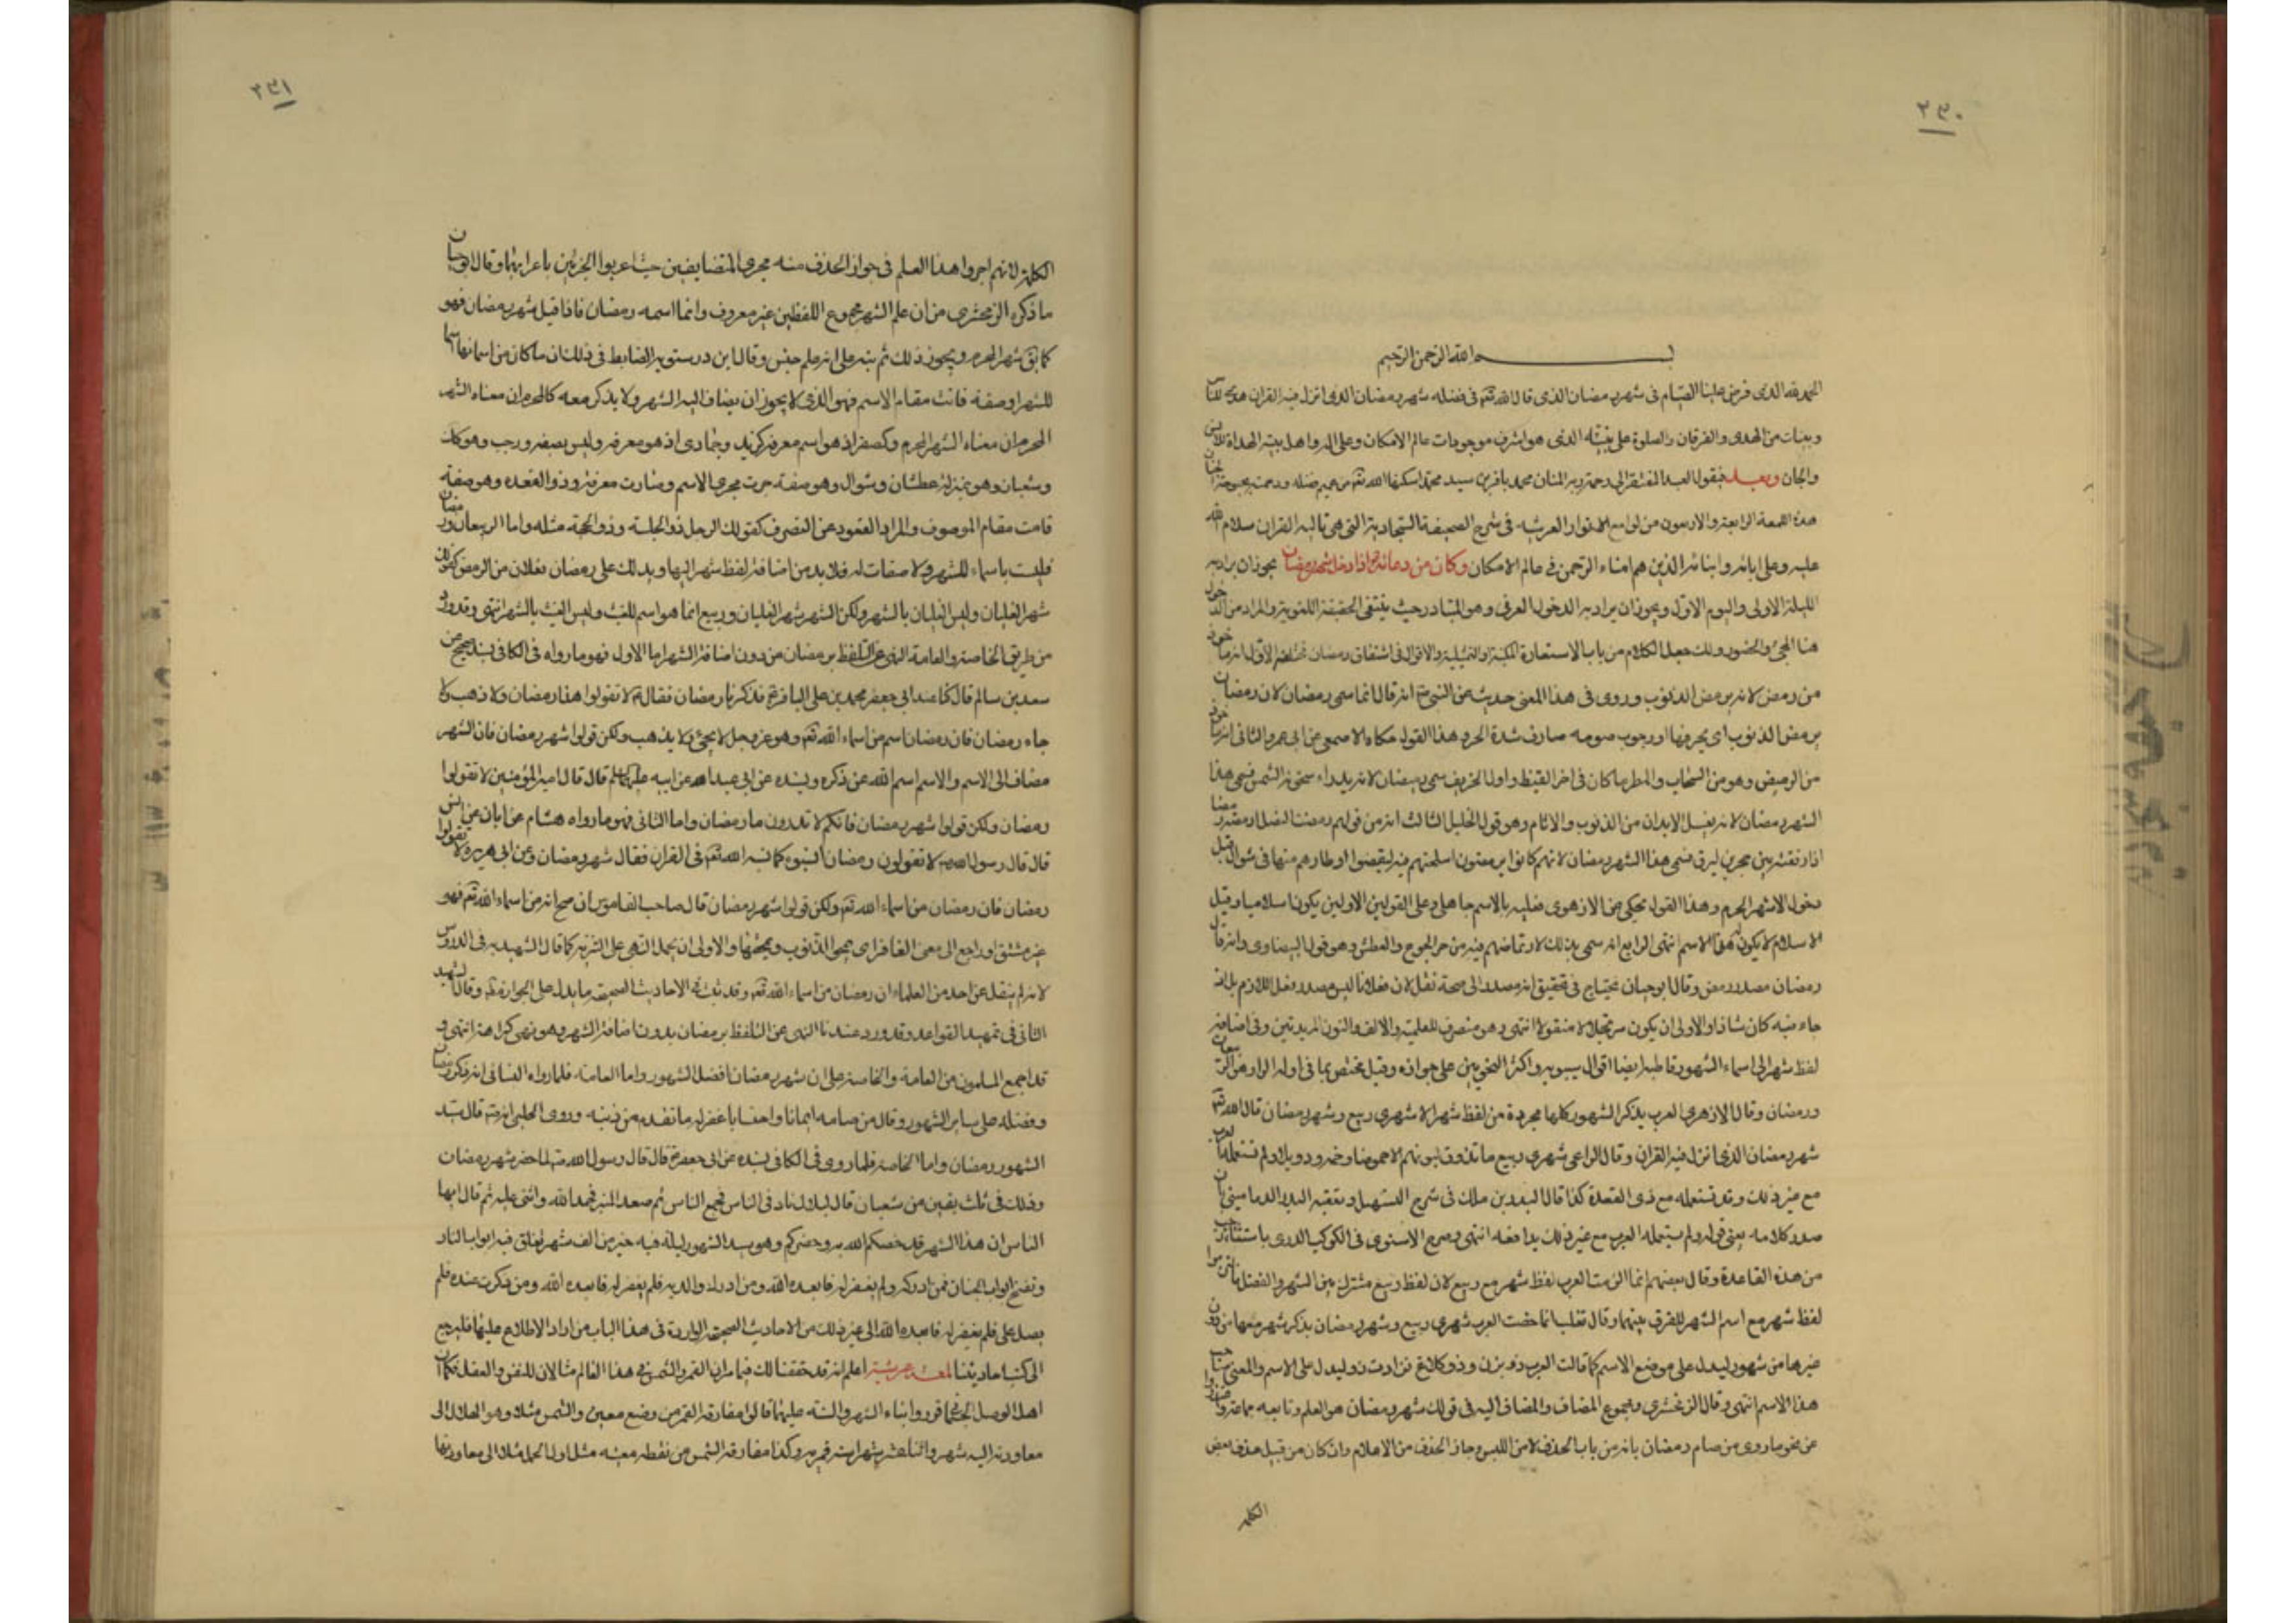 ٢٣٠
بسم الله الرحمن الرحيم
الحمد لله الذى فرض علينا الصيام فى شهر رمضان الذى قال الله تعم فى فضله شهر رمضان الذى انزل فيه القران هدى للناس
وبينات من الهدى والفرقان والصلوة على نبيه الذى هو اشرف موجودات عالم الامكان وعلى اله واهل بيته الهداة للانس
والجان وبعد فيقول العبد المفتقر الى رحمة ربه المنان محمد باقر بن سيد محمد اسكنهما الله تعم من عميم فضله ورحمته بحبوحة الجنان
هذه اللمعة الرابعة والاربعون من لوامع الانوار العرشيه فى شرح الصحيفة السجادية التى هى تالية القران سلام الله
عليه وعلى ابائه وابنائه الذين هم امناء الرحمن فى عالم الامكان وكان من دعائه ع اذا دخل شهر رمضان يجوز ان يراد به
الليلة الاولى واليوم الاول ويجوز ان يراد به الدخول العرفى وهو المتبادر حيث ينتفى الحقيقة اللغوية والمراد من الدخول
هنا المجئ والحضور ولك جعل الكلام من باب الاستعارة المكنية او التمثيلية والاقوال فى اشتقاق رمضان مختلفة الاول انه ماخوذ
من رمض لانه يرمض الذنوب وروى فى هذا المعنى حديث عن النبى ص انه قال انما سمى رمضان لان رمضان
يرمض الذنوب اى يحرقها او رجوب صومه صادف شدة الحر وهذا القول حكاه الاصمعى عن ابى عمرو الثانى انه ماخوذ
من الرميض وهو من السحاب والمطر ما كان فى اخر القيظ واول الخريف سمى رمضان لانه يدراء سخونة الشمس فسمى هذا
الشهر رمضان لانه يغسل الابدان من الذنوب والاثام وهو قول الخليل الثالث انه من قولهم رمضت النصل ارمضه رمضا
اذا دققته بين حجرين ليرق فسمى هذا الشهر رمضان لانهم كانوا يرمضون اسلحتهم فيه ليقضوا اوطارهم منها فى شوال قبل
دخول الاشهر الحرم وهذا القول يحكى عن الازهرى فعليه بالاسم جاهلى وعلى القولين الاولين يكون اسلاميا وقيل
الاسلام لا يكون له هذا الاسم انتهى الرابع انه سمى بذلك لارتماضهم فيه من حر الجوع والعطش وهو قول البيضاوى وانه قال
رمضان مصدر رمض وقال ابو حيان يحتاج فى تحقيق انه مصدر الى صحة نقل لان فعلانا ليس مصدر فعل اللازم بل ان
جاء منه كان شاذا والاولى ان يكون مرتجلا لا منقولا انتهى وهو منصرف للعلمية والالف والنون المزيدتين وفى اضافة
لفظ شهر الى اسماء الشهور قاطبة ايضا اقوال سيبويه واكثر النحويين على جوازه وقيل يختص بما فى اوله الراء وهى الربيعان
ورمضان وقال الازهرى العرب يذكر الشهور كلها مجردة من لفظ شهر الا شهرى ربيع وشهر رمضان قال الله تعم
شهر رمضان الذى انزل فيه القران وقال الراعى شهرى ربيع ما تذوق لبونهم الا حموضا وخمة ودويلا ولم تستعمله العرب
مع غير ذلك وقد تستعمله مع ذى القعدة كذا قال البدر بن ملك فى شرح التسهيل وتعقبه البدر الدمامينى بان
صدر كلامه يعنى قوله ولم تستعمله العرب مع غير ذلك يدافعه انتهى وصرح الاسنوى فى الكوكب الدرى باستثناء رجب
من هذه القاعدة وقال بعضهم انما الزمت العرب لفظ شهر مع ربيع لان لفظ ربيع مشترك بين الشهر والفصل فالتزموا
لفظ شهر مع اسم الشهر للفرق بينهما وقال ثعلب انما خصت العرب شهرى ربيع وشهر رمضان بذكر شهر معها من دون
غيرها من شهور ليدل على موضع الاسم كما قالت العرب ذو يزن وذو كلاع فزادت ذو ليدل على الاسم والمعنى صاحب
هذا الاسم انتهى وقال الزمخشرى ومجموع المضاف والمضاف اليه فى قولك شهر رمضان هو العلم وتابعه جماعة واعتذروا
عن نحو ما روى من صام رمضان بانه من باب الحذف لامن اللبس وجاز الحذف من الاعلام وان كان من قبيل حذف بعض
الكلمة
٢٣١
الكلمة لانهم اجروا هذا العلم فى جواز الحذف منه مجرى المتضايفين حيث اعربوا الجزئين باعرابهما وقال ابو حيان
ما ذكره الزمخشرى من ان علم الشهر مجموع اللفظين غير معروف وانما اسمه رمضان فاذا قيل شهر رمضان فهو
كما يق شهر المحرم ويجوز ذلك ثم نبه على انه علم جنس وقال ابن درستويه الضابط فى ذلك ان ما كان من اسمائها اسما
للشهر او صفة قامت مقام الاسم فهو الذى لا يجوز ان يضاف اليه الشهر ولا يذكر معه كالمحرم ان معناه الشهر
المحرم ان معناه الشهر المحرم وكصفر اذ هو اسم معرفة كزيد وجمادى اذ هو معرفة وليس بصفة ورجب وهو كك
وشعبان وهو بمنزلة عطشان وشوال وهو صفة جرت مجرى الاسم وصارت معرفة وذو القعده وهو صفة
قامت مقام الموصوف والمراد القعود عن التصرف كقولك الرجل ذو الجلسة وذو الحجة مثله واما الربيعان ورمضان
فليست باسماء للشهر ولا صفات له فلا بد من اضافة لفظ شهر اليها ويدلك على رمضان فعلان من الرمض كقولك
شهر الغليان وليس الغليان بالشهر ولكن الشهر شهر الغليان وربيع انما هو اسم للغيث وليس الغيث بالشهر انتهى وقد ورد
من طريق الخاصة والعامة النهى عن التلفظ برمضان من دون اضافة الشهر اما الاول فهو ما رواه فى الكافى بسند صحيح عن
سعد بن سالم قال كنا عند ابى جعفر محمد بن على الباقر ع فذكرنا رمضان فقال ع لا تقولوا هذا رمضان ولا ذهب ولا
جاء رمضان فان رمضان اسم من اسماء الله تعم وهو عز وجل لا يجئ ولا يذهب ولكن قولوا شهر رمضان فان الشهر
مضاف الى الاسم والاسم اسم الله عن ذكره وبسنده عن ابى عبد الله عن ابيه عليهما السلام قال قال امير المؤمنين لا تقولوا
رمضان ولكن قولوا شهر رمضان فانكم لا تدرون ما رمضان واما الثانى فهو ما رواه هشام عن ابان عن انس
قال قال رسول الله ص لا تقولون رمضان انسبوه كما نسبه الله تعم فى القران فقال شهر رمضان وعن ابى هريره لا تقولوا
رمضان فان رمضان من اسماء الله تعم ولكن قولوا شهر رمضان قال صاحب القاموس ان صح انه من اسماء الله تعم فهو
غير مشتق او راجع الى معنى الغافر اى يمحو الذنوب ويمحقها والاولى ان يحمل النهى على التنزيه كما قال الشهيد ره فى الدروس
لانه لم ينقل عن احد من العلماء ان رمضان من اسماء الله تعم وقد ثبت فى الاحاديث الصحيحة ما يدل على الجواز وقال الشهيد
الثانى فى تمهيد القواعد وقد ورد عندنا النهى عن التلفظ برمضان بدون اضافة الشهر وهو نهى كراهة انتهى و
قد اجمع المسلمون من العامة والخاصة على ان شهر رمضان افضل الشهور واما العامة فلما رواه النسائى انه ذكر رمضان
وفضله على ساير الشهور وقال من صامه ايمانا واحتسابا غفر له ما تقدم من ذنبه وروى الحلبى انه ص قال سيد
الشهور رمضان واما الخاصة فلما روى فى الكافى بسنده عن ابى جعفر ع قال قال رسول الله ص لما حضر شهر رمضان
وذلك فى ثلث بقين من شعبان قال لبلال ناد فى الناس فجمع الناس ثم صعد المنبر فحمد الله واثنى عليه ثم قال ايها
الناس ان هذا الشهر قد خصكم الله به وحضركم وهو سيد الشهور ليلة فيه خير من الف شهر تغلق فيه ابواب النار
وتفتح ابواب الجنان فمن ادركه ولم يغفر له فابعده الله ومن ادرك والديه فلم يغفر له فابعده الله ومن ذكرت عنده فلم
يصل على فلم يغفر له فابعده الله الى غير ذلك من الاحاديث الصحيحة الواردة فى هذا الباب من اراد الاطلاع عليها فليرجع
الى كتب احاديثنا لمعة عرشية اعلم انه قد حققنا لك فيما مر ان القمر والشمس فى هذا العالم مثالان للنفس والعقل فكما ان
اهل الوصل قرروا ابناء الشهر والسنه عليهما قالوا مفارقة القمر من وضع معين والشمس مثلا وهو الهلال الى
معاودته اليه شهر واثنا عشر شهرا سنة قمرية وكذا مفارقة الشمس من نقطه معينه مثل اول الحمل مثلا الى معاودتها